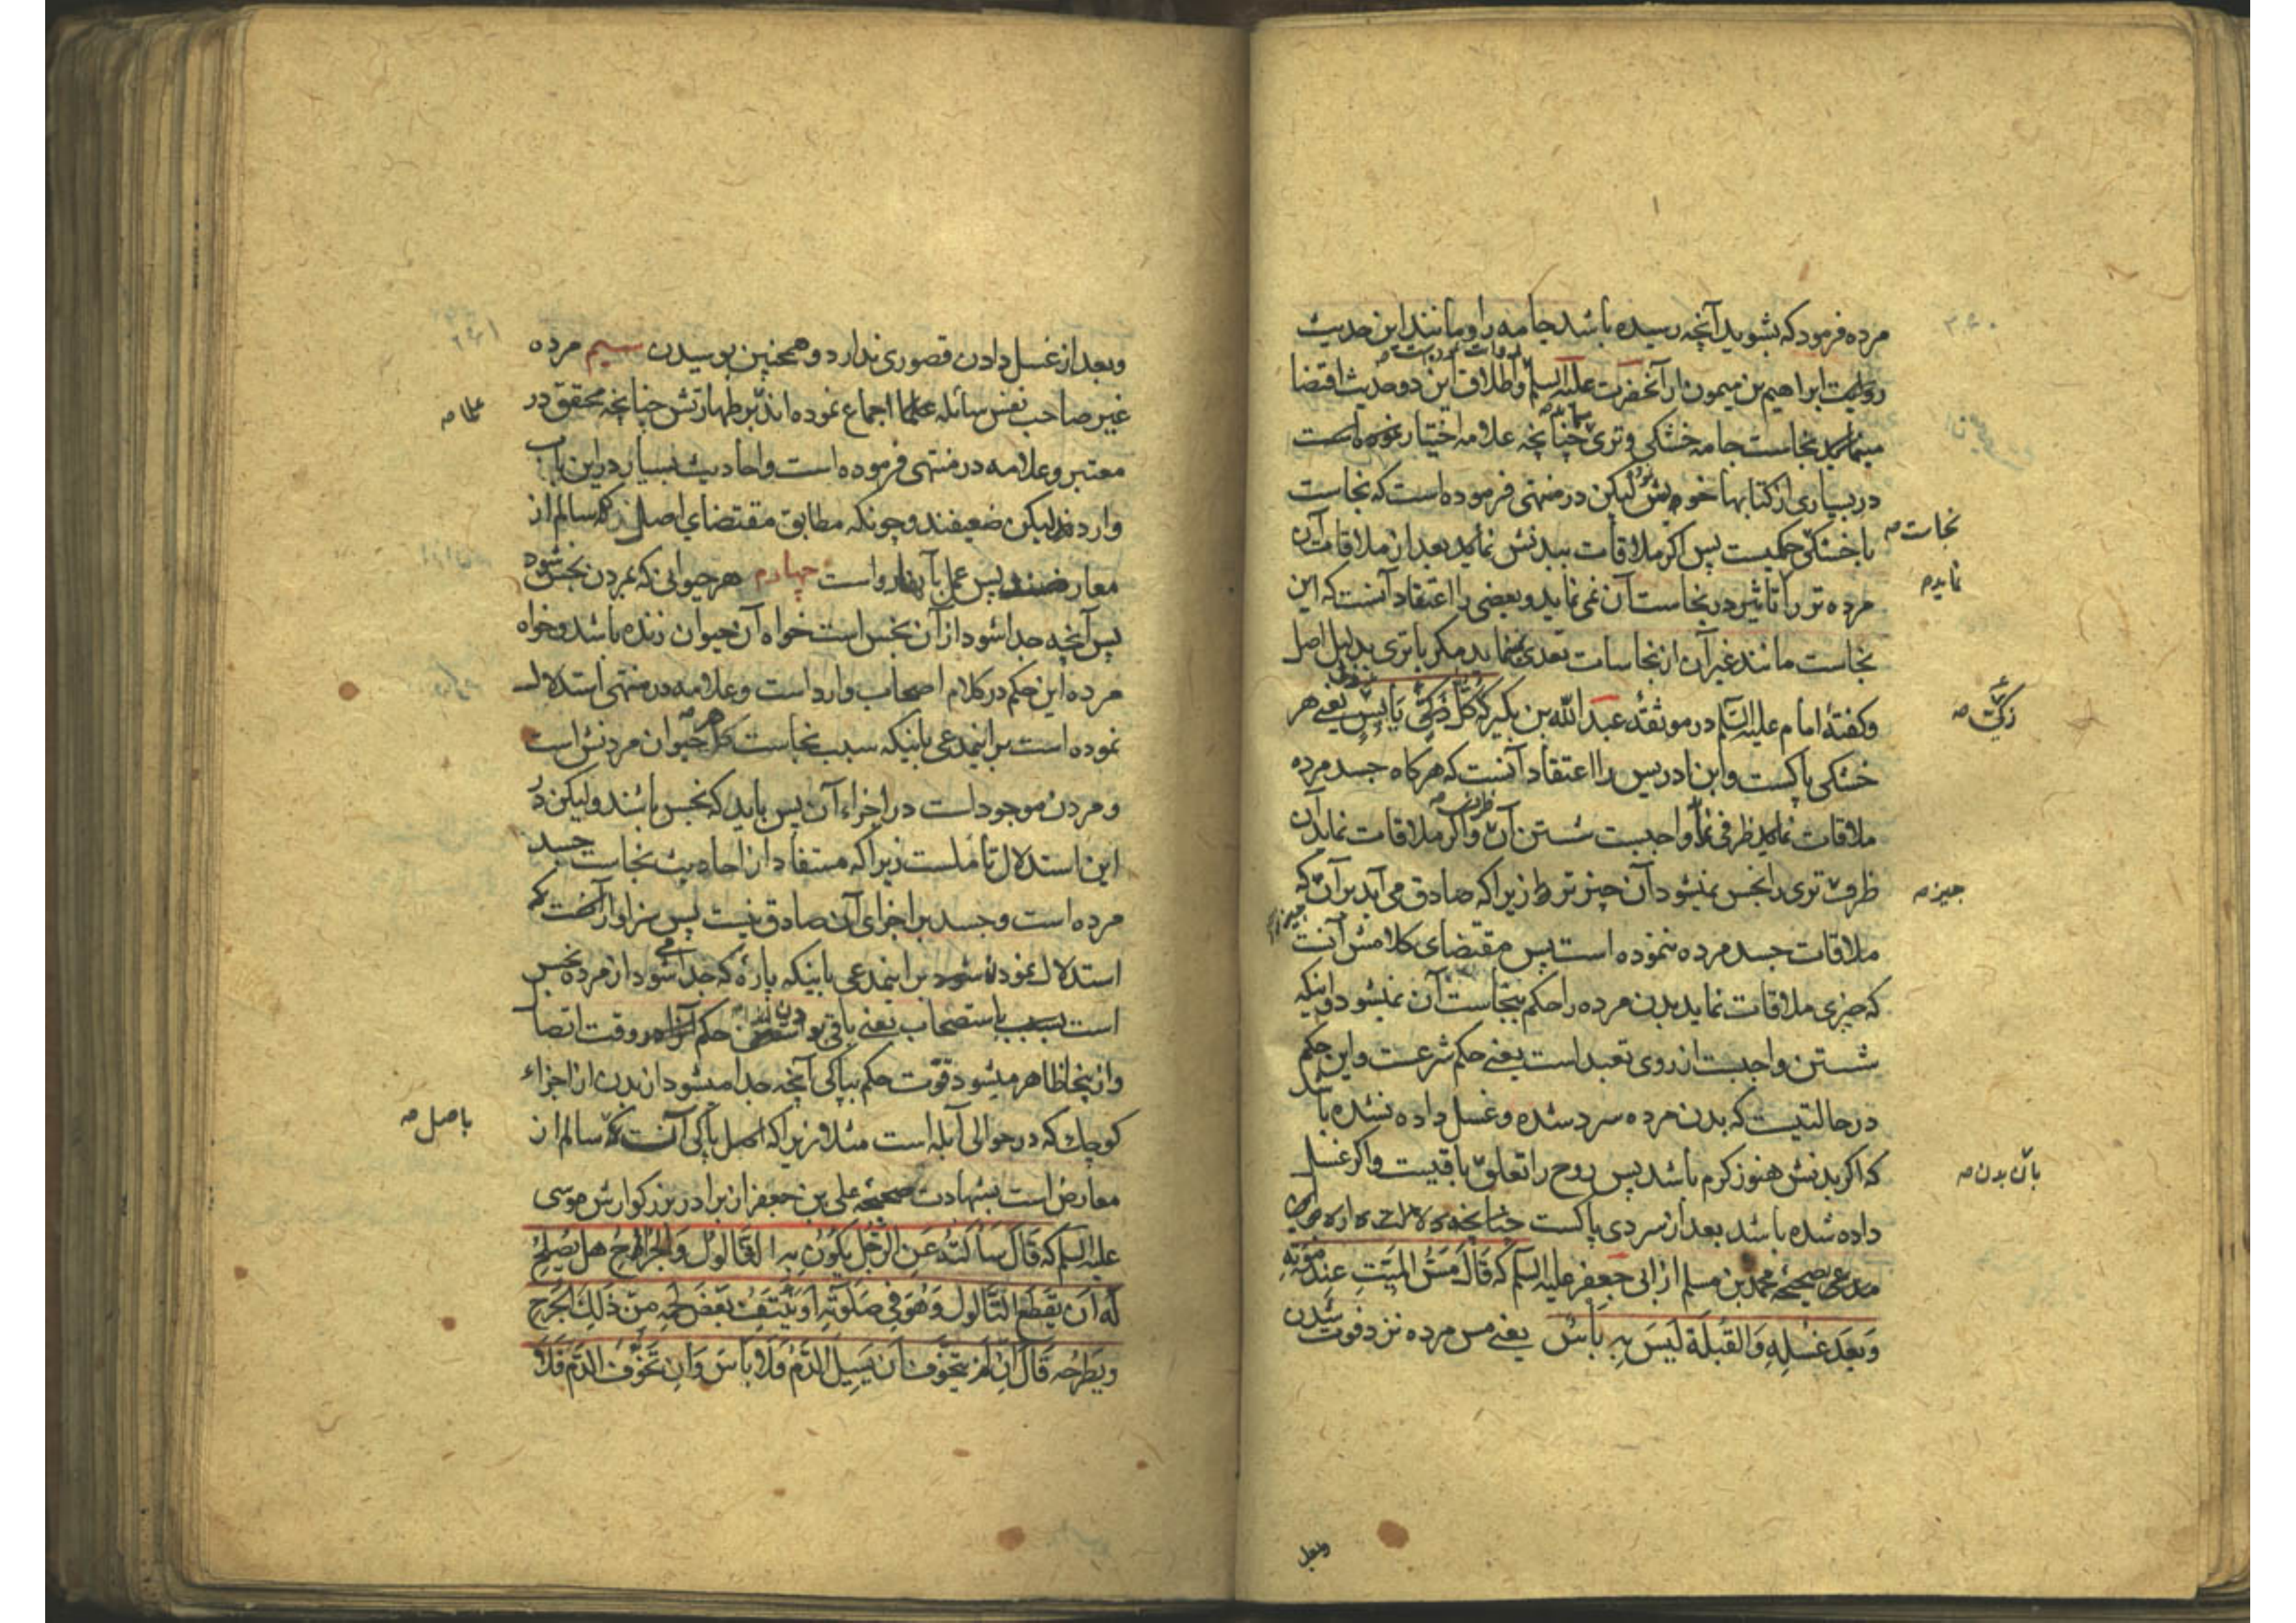 مرده فرمود که بشوید آنچه رسیده باشد جامه را و مانند این حدیث
روایت ابراهیم بن میمون از آنحضرت علیه السلم و اطلاق این دو حدیث اقتضا
مینماید نجاست جامه خشکی و تری چنانچه علامه اختیار نموده است
در بسیاری از کتابها خویش لیکن در منتهی فرموده است که نجاست
نجاست صح
با خشکی حکمیست پس اگر ملاقات ببدنش نماید بعد از ملاقات آن
نماید صح
مرده تر را تاثیر در نجاست آن نمی نماید و بعضی را اعتقاد آنست که این
نجاست مانند غیر آن از نجاسات تعدی نمینماید مگر با تری بدلیل اصل
و گفتهٔ امام علیه السلم در موثقهٔ عبد الله بن بکیر که کُلُّ ذَکِیٌّ یَابِسٍ یعنی هر
زکیّ صح
خشکی پاکست و ابن ادریس را اعتقاد آنست که هرگاه جسد مرده
ملاقات نماید ظرفی را واجبست شستن آن ظرف و اگر ملاقات نماید آن
ظرف تری را نجس نمیشود آن چیز تر زیرا که صادق می آید بر آن که
چیز صح
ملاقات جسد مرده ننموده است پس مقتضای کلامش آنست
که چیزی ملاقات نماید بدن مرده را حکم بنجاست آن نمیشود و اینکه
شستن واجبست از روی تعبد است یعنی حکم شرعست و این حکم
در حالتیست که بدن مرده سرد شده و غسل داده نشده باشد
که اگر بدنش هنوز گرم باشد پس روح را تعلق باقیست و اگر غسل
بآن بدن صح
داده شده باشد بعد از سردی پاکست چنانچه
مدعی صحیحهٔ محمد بن مسلم از ابی جعفر علیه السلم که قَالَ مَسُّ المَیِّتِ عِندَ مَوْتِهِ
وَ بَعْدَ غُسْلِهِ وَ القُبْلَة لَیسَ بِهِ بَأسٌ یعنی مس مرده نزد فوت شدن
وبعد
وبعد از غسل دادن قصوری ندارد و همچنین بوسیدن سیم مرده
غیر صاحب نفس سائله علما اجماع نموده اند بر طهارتش چنانچه محقق در
علما صح
معتبر و علامه در منتهی فرموده است و احادیث بسیار در این باب
واردند لیکن ضعیفند و چونکه مطابق مقتضای اصلند که سالم از
معارضند پس عمل بآنها رواست چهارم هر حیوانی که بمردن نجس شود
پس آنچه جدا شود از آن نجس است خواه آن حیوان زنده باشد و خواه
مرده این حکم در کلام اصحاب وارد است و علامه در منتهی استدلال
نموده است بر اینمدعی باینکه سبب نجاست کل حیوان مردنش است
و مردن موجود است در اجزاء آن پس باید که نجس باشند و لیکن در
این استدلال تأملست زیرا که مستفاد از احادیث نجاست جسد
مرده است و جسد بر اجزای آن صادق نیست پس سزاوار آنست که
استدلال نموده شود بر اینمدعی باینکه پارهٔ که جدا می شود از مرده نجس
است بسبب استصحاب یعنی باقی بودن حکم وقت اتصال
و از اینجا ظاهر میشود قوت حکم بپاکی آنچه جدا میشود از بدن از اجزاء
کوچک که در حوالی آبله است مثلا زیرا که اصل پاکی آنست که سالم از
باصل صح
معارض است بشهادت صحیحه علی بن جعفر از برادر بزرگوارش موسی
علیه السلم که قَالَ سَأَلتُهُ عَنِ الرَّجُلِ یَکُونُ بِهِ الثَّالُولُ وَ الجَرَاحُ هَل یَصْلُحُ
لَهُ اَن یَقطَعَ الثَّالُولَ وَ هُوَ فِی صَلوتِهِ اَو یَنْتِفُ بَعْضَ لَحْمِهِ مِن ذَلِکَ الجَرْحِ
وَ یَطرَحُه قَالَ اِن لَم یَتَخَوَّف اَن یَسِیلَ الدَّمُ فَلا بَأسَ وَ اِن تَخَوَّفَ الدَّمَ فَلا